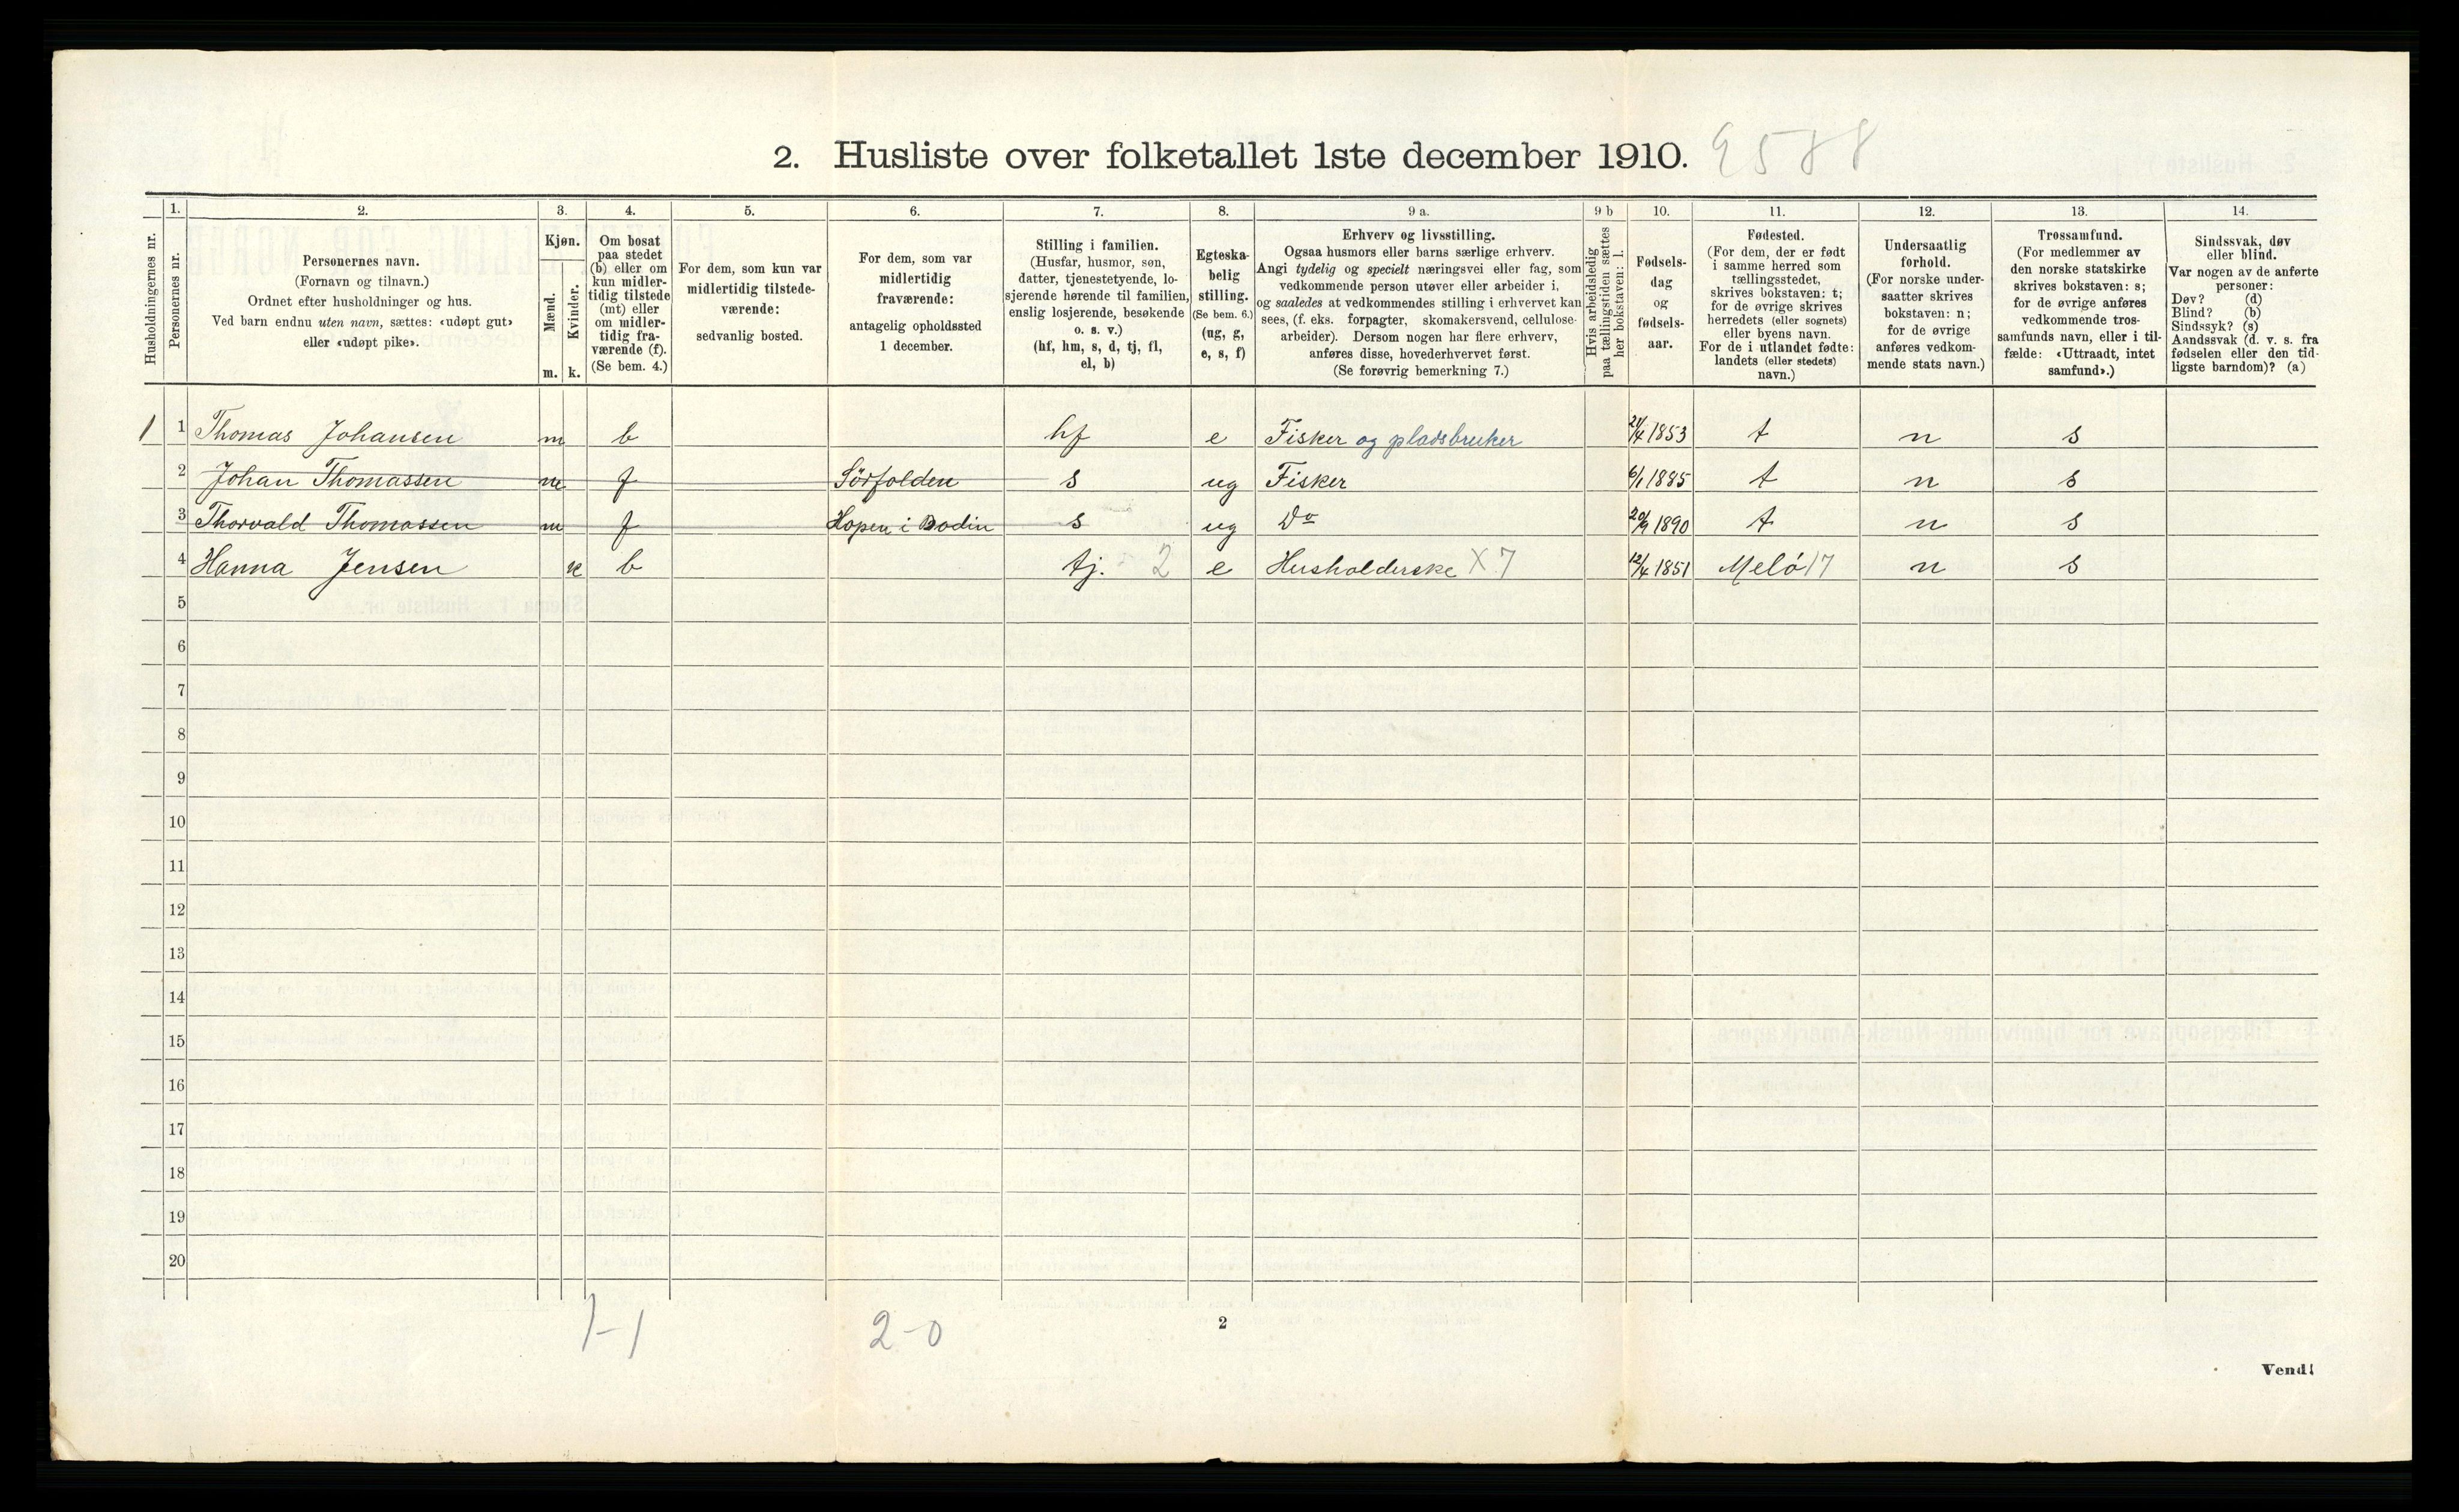 2. Husliste over folketallet 1ste december 1910. 9588
Husholdningernes nr.
1. Personernes nr.
2.
Personernes navn.
(Fornavn og tilnavn.)
Ordnet efter husholdninger og hus.
Ved barn endnu uten navn, sættes: «udøpt gut»
eller «udøpt pike».
3.
Kjøn.
Mænd. Kvinder.
m. k.
4.
Om bosat
paa stedet
(b) eller om
kun midler-
tidig tilstede
(mt) eller
om midler-
tidig fra-
værende (f).
(Se bem. 4.)
5.
For dem, som kun var
midlertidig tilstede-
værende:
sedvanlig bosted.
6.
For dem, som var
midlertidig
fraværende:
antagelig opholdssted
1 december.
7.
Stilling i familien.
(Husfar, husmor, søn,
datter, tjenestetyende, lo-
sjerende hørende til familien,
enslig losjerende, besøkende
o. s. v.)
(hf, hm, s, d, tj, fl,
el, b)
8.
Egteska-
belig
stilling.
(Se bem. 6.)
(ug, g,
e, s, f)
9 a.
Erhverv og livsstilling.
Ogsaa husmors eller barns særlige erhverv.
Angi tydelig og specielt næringsvei eller fag, som
vedkommende person utøver eller arbeider i,
og saaledes at vedkommendes stilling i erhvervet kan
sees, (f. eks. forpagter, skomakersvend, cellulose-
arbeider). Dersom nogen har flere erhverv,
anføres disse, hovederhvervet først.
(Se forøvrig bemerkning 7.)
9 b
Hvis arbeidsledig
paa tællingstiden sættes
her bokstaven: l.
10.
Fødsels-
dag
og
fødsels-
aar.
11.
Fødested.
(For dem, der er født
i samme herred som
tællingsstedet,
skrives bokstaven: t;
for de øvrige skrives
herredets (eller sognets)
eller byens navn.
For de i utlandet fødte:
landets (eller stedets)
navn.)
12.
Undersaatlig
forhold.
(For norske under-
saatter skrives
bokstaven: n;
for de øvrige
anføres vedkom-
mende stats navn.)
13.
Trossamfund.
(For medlemmer av
den norske statskirke
skrives bokstaven: s;
for de øvrige anføres
vedkommende tros-
samfunds navn, eller i til-
fælde: «Uttraadt, intet
samfund».)
14.
Sindssvak, døv
eller blind.
Var nogen av de anførte
personer:
Døv? (d)
Blind? (b)
Sindssyk? (s)
Aandssvak (d. v. s. fra
fødselen eller den tid-
ligste barndom)? (a)
1 1 Thomas Johansen m b hf e Fisker og pladsbruker 21/4 1853 t n s
2 Johan Thomassen m f Sörfolden s ug Fisker 6/1 1885 t n s
3 Thorvald Thomassen m f Hopen i Bodin s ug Do 20/9 1890 t n s
4 Hanna Jensen k b tj. 2 e Husholderske X 7 12/4 1851 Melö 17 n s
5
6
7
8
9
10
11
12
13
14
15
16
17
18
19
20
1-1 2-0
2
Vend!